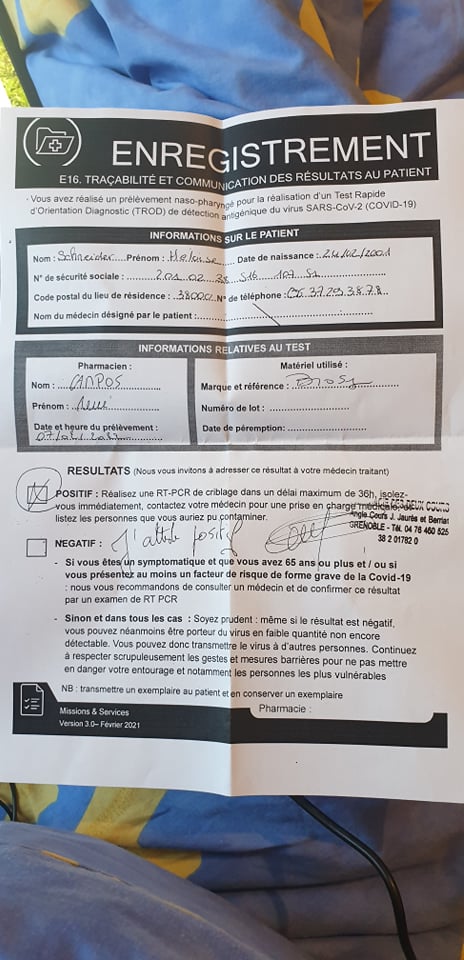 ENREGISTREMENT
E16. TRAÇABILITÉ ET COMMUNICATION DES RÉSULTATS AU PATIENT
- Vous avez réalisé un prélèvement naso-pharyngé pour la réalisation d'un Test Rapide
d'Orientation Diagnostic (TROD) de détection antigénique du virus SARS-CoV-2 (COVID-19)
INFORMATIONS SUR LE PATIENT
Nom : Schneider Prénom : Heloise Date de naissance : 24/02/2001
N° de sécurité sociale : 2 01 02 38 516 107 51
Code postal du lieu de résidence : 38000 N° de téléphone : 06.37.29.38.78
Nom du médecin désigné par le patient :
INFORMATIONS RELATIVES AU TEST
Pharmacien :
Nom : CAMPOS
Prénom : Remi
Date et heure du prélèvement :
Matériel utilisé :
Marque et référence :
Numéro de lot :
Date de péremption:
RESULTATS (Nous vous invitons à adresser ce résultat à votre médecin traitant)
POSITIF : Réalisez une RT-PCR de criblage dans un délai maximum de 36h, isolez-
vous immédiatement, contactez votre médecin pour une prise en charge médicale, et
listez les personnes que vous auriez pu contaminer.
DEUX COURS
Angle Cours J. Jaurès et Berriat
GRENOBLE - Tél. 04 76 460 525
38 2 01782 0
J'atteste positif
NEGATIF :
- Si vous êtes un symptomatique et que vous avez 65 ans ou plus et / ou si
vous présentez au moins un facteur de risque de forme grave de la Covid-19
: nous vous recommandons de consulter un médecin et de confirmer ce résultat
par un examen de RT PCR
- Sinon et dans tous les cas : Soyez prudent : même si le résultat est négatif,
vous pouvez néanmoins être porteur du virus en faible quantité non encore
détectable. Vous pouvez donc transmettre le virus à d'autres personnes. Continuez
à respecter scrupuleusement les gestes et mesures barrières pour ne pas mettre
en danger votre entourage et notamment les personnes les plus vulnérables
NB : transmettre un exemplaire au patient et en conserver un exemplaire
Missions & Services
Version 3.0– Février 2021
Pharmacie :